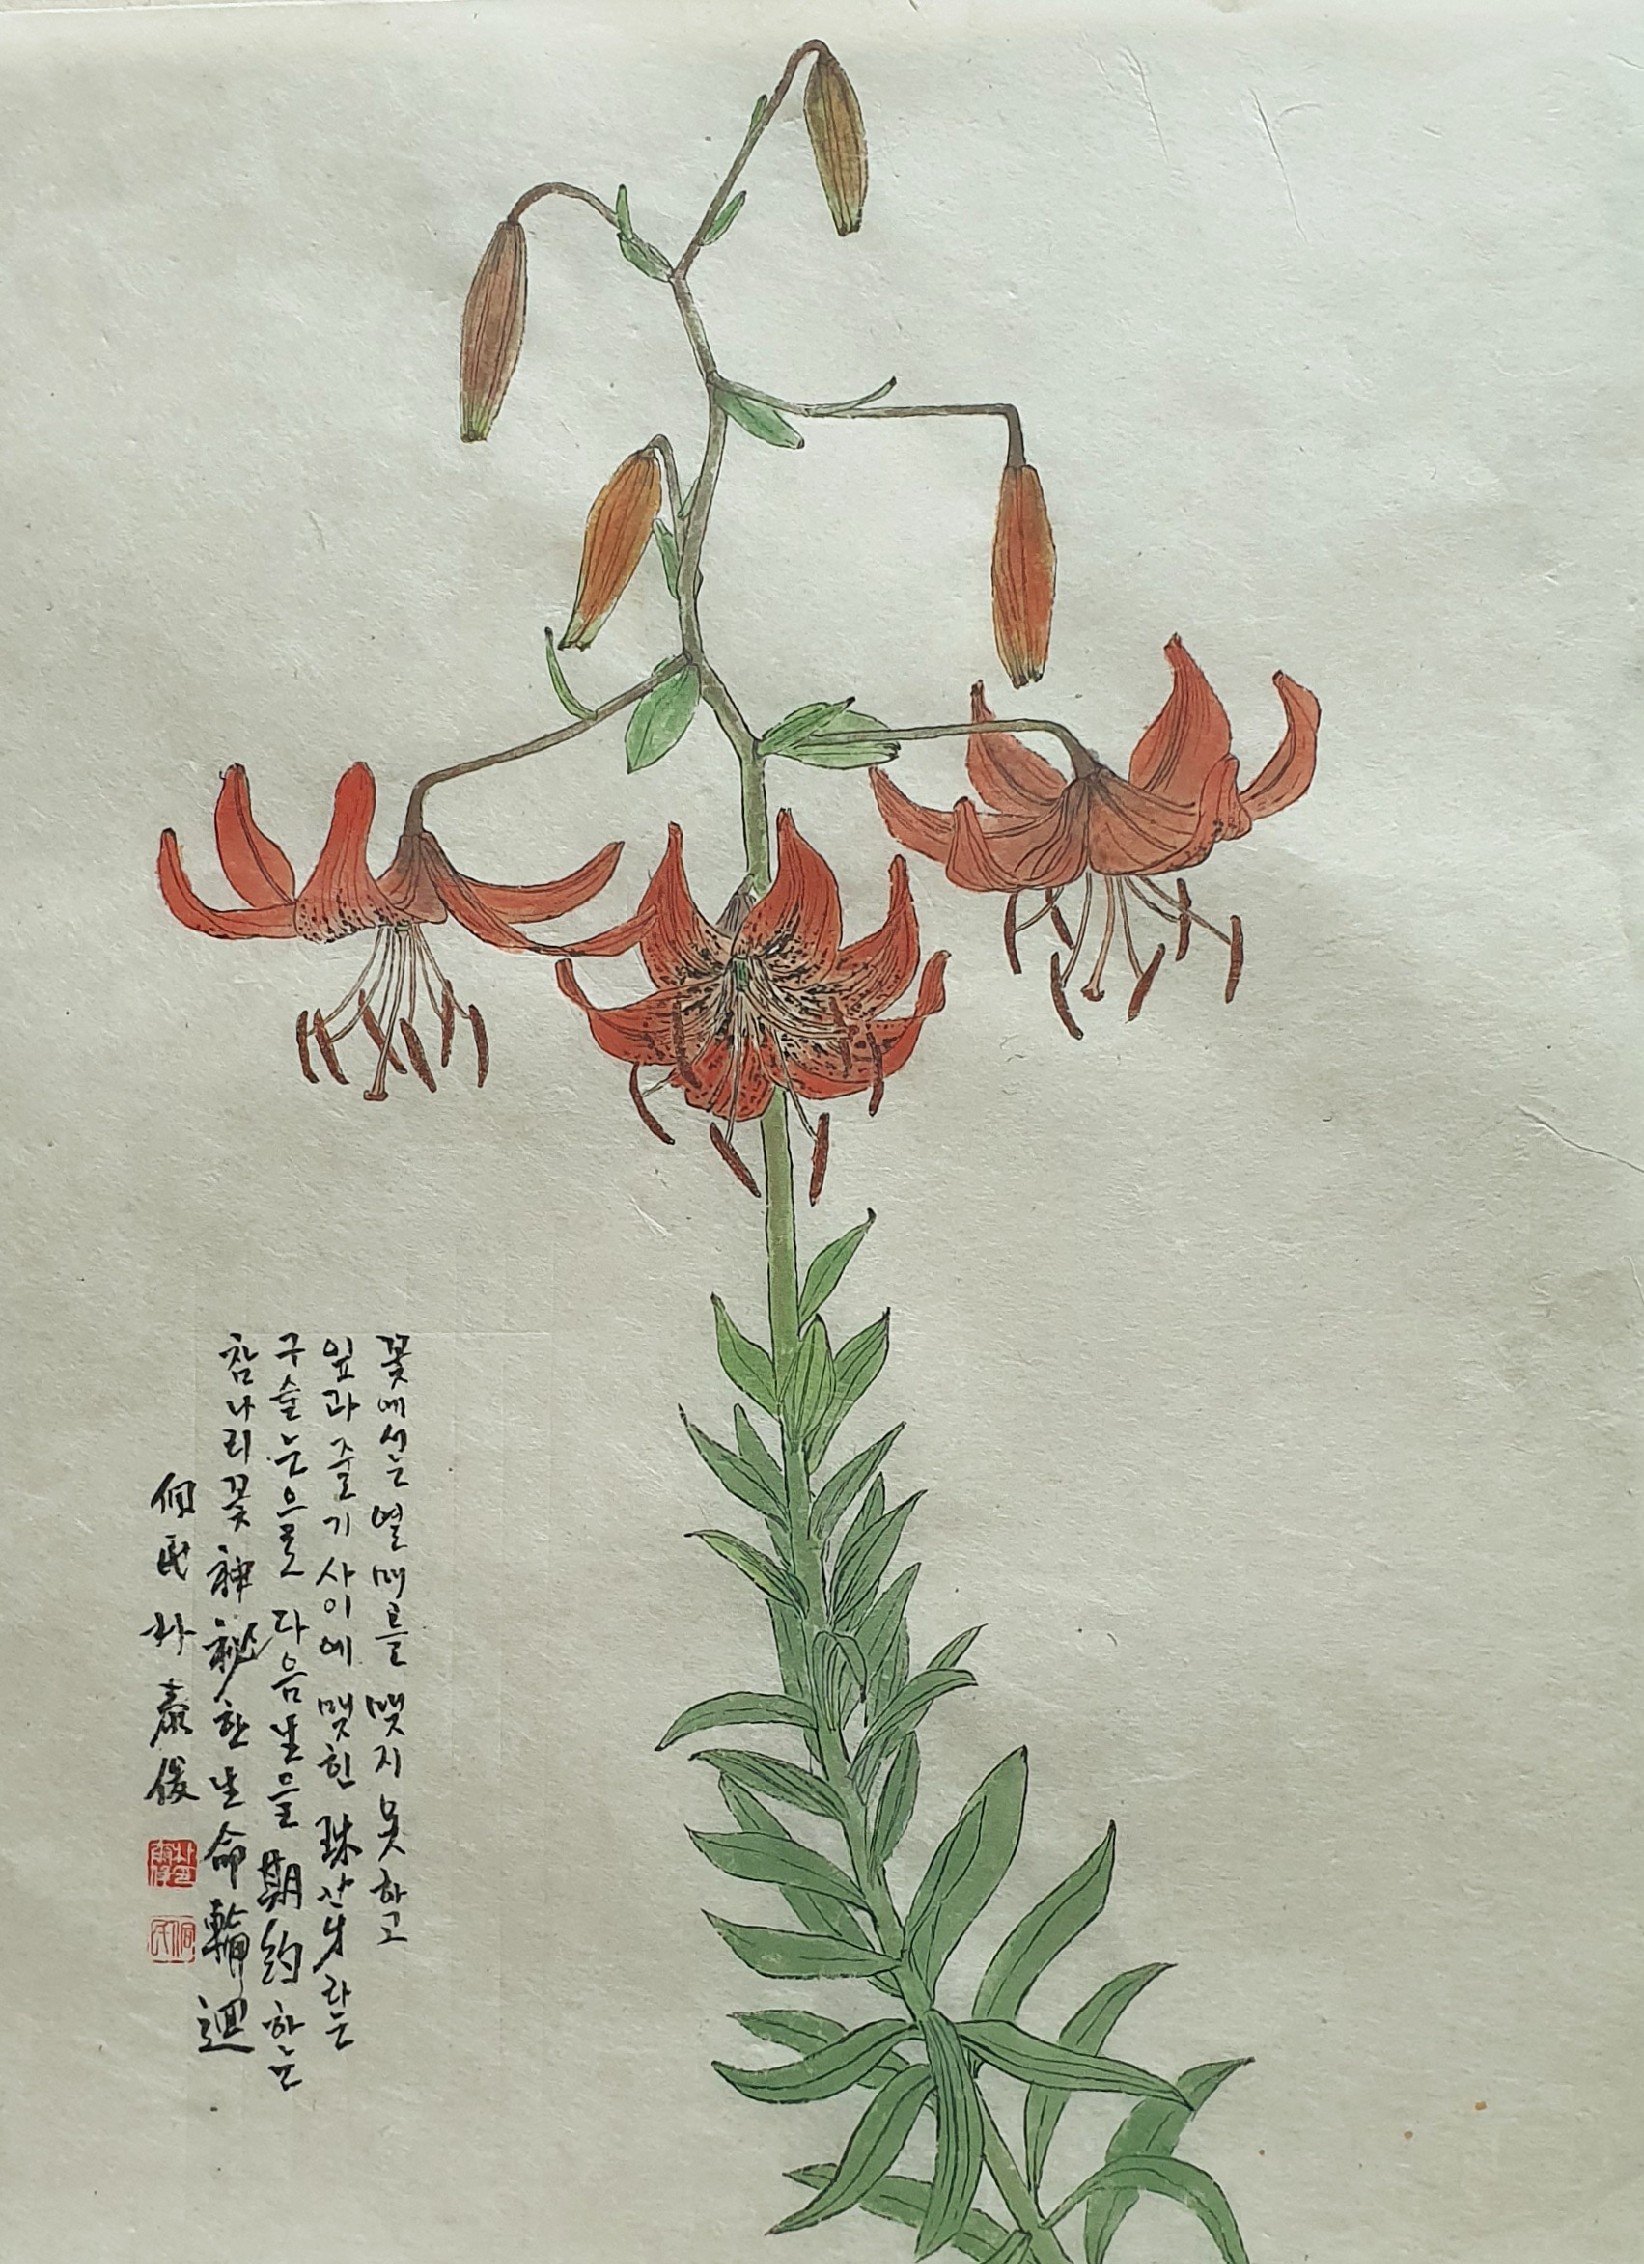 꽃에서는 열매를 맺지 못하고
잎과 줄기 사이에 맺힌 珠芽라는
구슬눈으로 다음날을 期約하는
참나리꽃 神秘한 生命 輪迴
朴泰俊